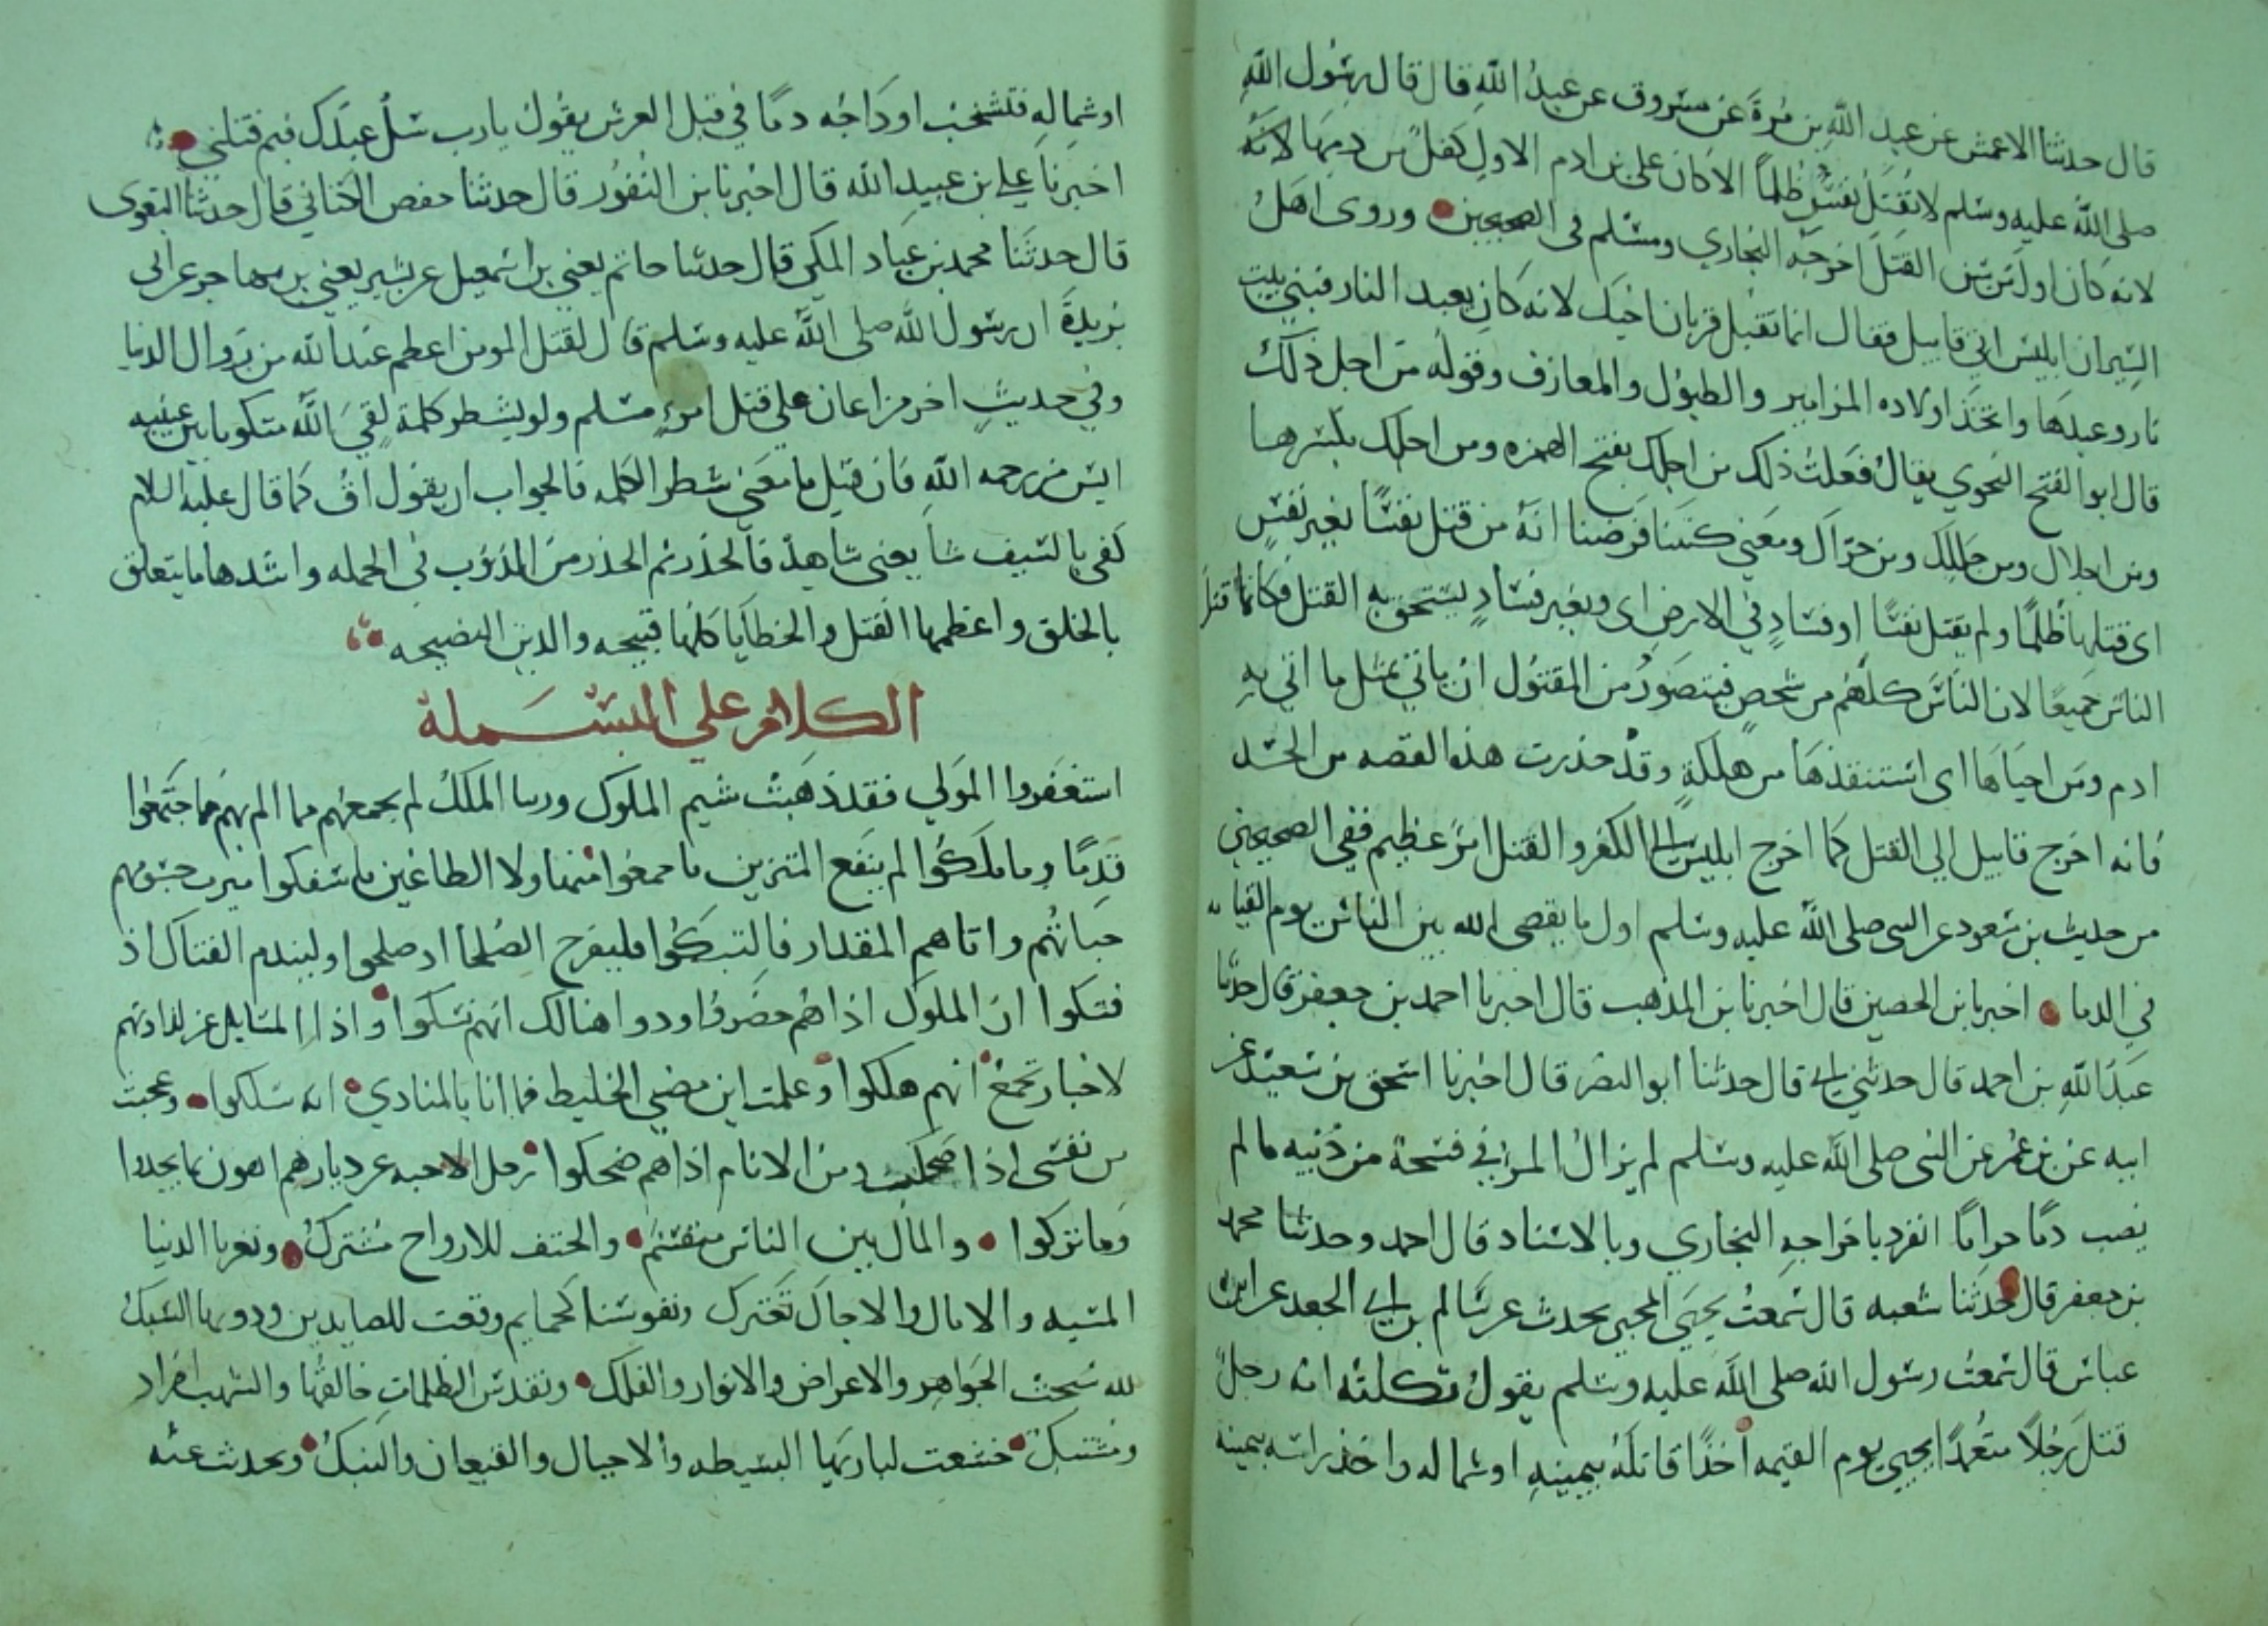 قال حدثنا الاعمش عن عبد الله بن مرة عن مسروق عن عبد الله قال قال رسول الله
صلى الله عليه وسلم لا تقتل نفس ظلماً الا كان على بن ادم الاول كفل من دمها لانه
لانه كان اول من سن القتل اخرجه البخاري ومسلم في الصحيحين وروى اهل
السير ان ابليس اتى قابيل فقال انما تقبل قربان اخيك لانه كان يعبد النار فبني بيت
نار وعبدها واتخذ اولاده المزامير والطبول والمعازف وقوله من اجل ذلك
قال ابو الفتح النحوي يقال فعلت ذلك من اجلك بفتح الهمزه ومن اجلك بكسرها
ومن اجلال ومن جللك ومن جراك ومعنى كتبنا فرضنا انه من قتل نفساً بغير نفس
اى قتلها ظلمًا ولم يقتل نفسًا او فسادٍ في الارض اى وبغير فساد يستحق به القتل فكانما قتل
الناس جميعًا لان الناس كلهم من شخص فيتصور من المقتول ان ياتي بمثل ما اتى به
ادم ومن احياها اى استنقذها من هلكةٍ وقد حذرت هذه القصه من الحسد
فانه اخرج قابيل الى القتل كما اخرج ابليس الى الكفر والقتل امر عظيم ففي الصحيحين
من حديث بن مسعود عن النبي صلى الله عليه وسلم اول ما يقضى الله بين الناس يوم القيامه
في الدما اخبرنا بن الحصين قال اخبرنا بن المذهب قال اخبرنا احمد بن جعفر قال حدثنا
عبد الله بن احمد قال حدثني ابي قال حدثنا ابو النضر قال اخبرنا اسحق بن سعيد عن
ابيه عن بن عمر عن النبي صلى الله عليه وسلم لم يزال المرا في فسحة من دينه ما لم
يصب دمًا حرامًا انفرد باخراجه البخاري وبالاسناد قال احمد وحدثنا محمد
بن جعفر قال حدثنا شعبه قال سمعت يحيى المجبر يحدث عن سالم بن ابي الجعد عن ابن
عباس قال سمعت رسول الله صلى الله عليه وسلم يقول ثكلته امه رجل
قتل رجلاً متعمدًا يجيى يوم القيمه اخذًا قاتله بيمينه او شماله واخذ راسه بيمينه
او شماله فتشخب اوداجه دمًا في قبل العرش يقول يا رب سل عبدك فيم قتلني
اخبرنا علي بن عبيد الله قال اخبرنا بن النقور قال حدثنا حفص الكتاني قال حدثنا البغوى
قال حدثنا محمد بن عباد المكي قال حدثنا حاتم يعني بن اسمعيل عن بشير يعني بن مهاجر عن ابي
بريدة ان رسول الله صلى الله عليه وسلم قال لقتل المومن اعظم عند الله من زوال الدنيا
وفي حديث اخر من اعان على قتل امرءٍ مسلم ولو بشطر كلمة لقي الله مكتوبا بين عينيه
ايس من رحمه الله فان قيل ما معنى شطر الكلمه فالجواب ان يقول اق كما قال عليه السلام
كفى بالسيف شا يعنى شاهد فالحذر ثم الحذر من الذنوب في الجمله واشدها ما يتعلق
بالخلق واعظمها القتل والخطايا كلها قبيحه والدين النصيحه
الكلام على البسملة
استغفروا المولى فقد ذهبت شيم الملوك الملك لم يجمعهم
قدمًا وما ملكوا لم ينفع المثرين ما جمعوا منها ولا الطاغين ما سفكوا
حياتهم واتاهم المقدار فليفرح الصلحا اذ صلحوا وليندم الفتاك اذ
فتكوا ان الملوك اذا هم حضروا ودوا هنالك انهم نسكوا واذا المسايل عن لداتهم
لاخبار تجمع انهم هلكوا وعلمت اين مضى الخليط فما انا بالمنادي انه سلكوا وعجبت
من نفسى اذا ضحكت ومن الانام اذا هم ضحكوا رحل الاحبه عن ديارهم اهون بما يجدوا
وما تركوا والمال بين الناس منقسم والحتف للارواح مشترك وتغرنا الدنيا
المسيه والامال والاجال تعترك ونفوسنا كحمايم وقعت للصايدين ودونها الشبك
لله سبحت الجواهر والاعراض والانوار والفلك وتقدس الظلمات خالقها والشهب افراد
ومشتبك خشعت لباريها البسيطه والاجبال والقيعان والنبك وتحدث عنه